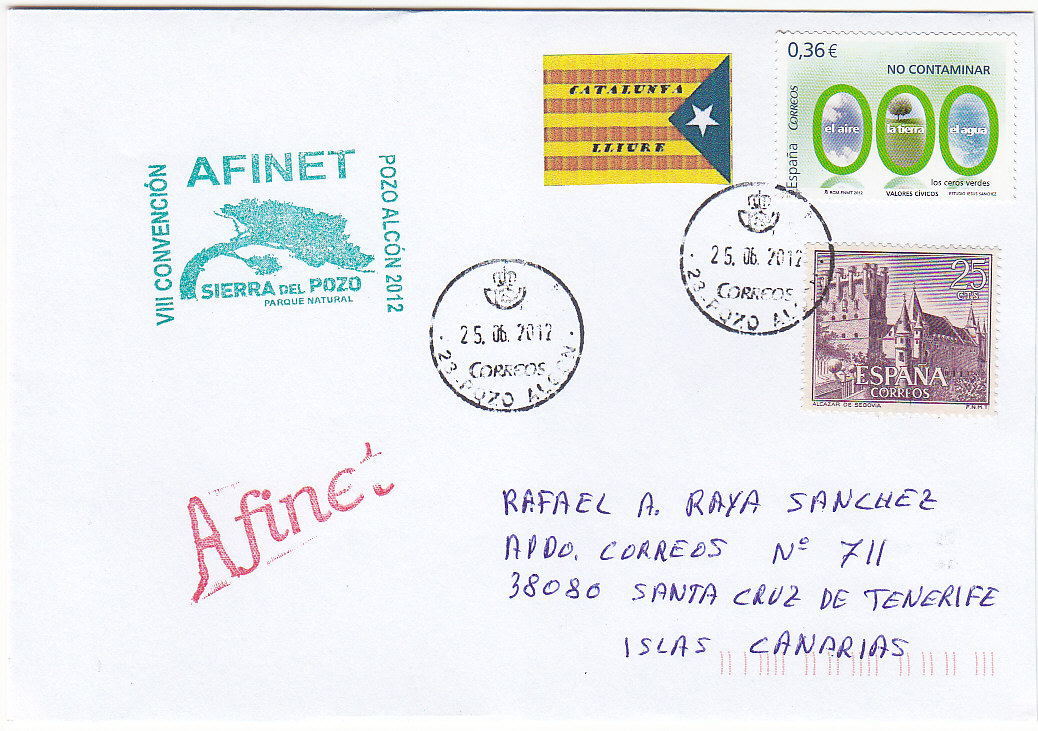 VIII CONVENCIÓN
AFINET
POZO ALCÓN 2012
SIERRA DEL POZO
PARQUE NATURAL
CATALUNYA
LLIURE
0,36 €
NO CONTAMINAR
CORREOS
España
el aire
la tierra
el agua
los ceros verdes
© RCM FNMT 2012
VALORES CÍVICOS
ESTUDIO JESÚS SÁNCHEZ
25.06.2012
CORREOS
23-POZO ALCÓN
25.06.2012
CORREOS
23-POZO AL
25
CTS
ESPAÑA
CORREOS
ALCAZAR DE SEGOVIA
F.N.M.T
Afinet
RAFAEL A. RAYA SANCHEZ
APDO. CORREOS Nº 711
38080 SANTA CRUZ DE TENERIFE
ISLAS CANARIAS